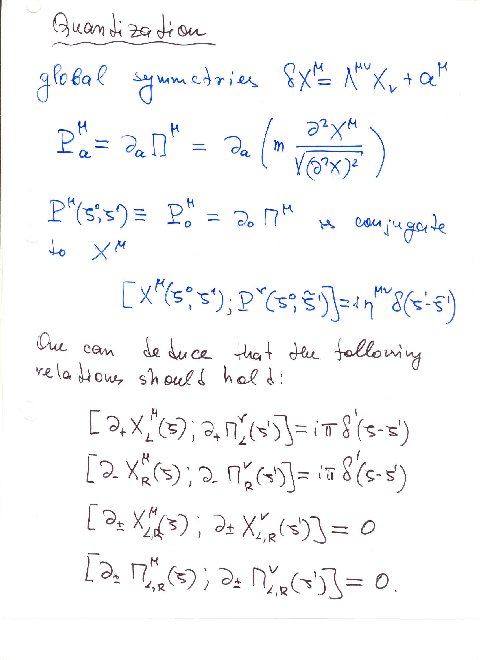 Quantization
global symmetries δX^μ = Λ^{μν}X_ν + a^μ
P_a^μ = ∂_a Π^μ = ∂_a ( m ∂²X^μ / √(∂²X)² )
P^μ(ξ⁰,ξ¹) ≡ P_0^μ = ∂_0 Π^μ is conjugate
to X^μ
[X^μ(ξ⁰,ξ¹); P^ν(ξ⁰,ξ̃¹)] = iη^{μν} δ(ξ¹-ξ̃¹)
One can deduce that the following
relations should hold:
[∂₊X_L^μ(ξ); ∂₊Π_L^ν(ξ')] = iπδ'(ξ-ξ')
[∂₋X_R^μ(ξ); ∂₋Π_R^ν(ξ')] = iπδ'(ξ-ξ')
[∂±X_{L,R}^μ(ξ); ∂±X_{L,R}^ν(ξ')] = 0
[∂±Π_{L,R}^μ(ξ); ∂±Π_{L,R}^ν(ξ')] = 0.